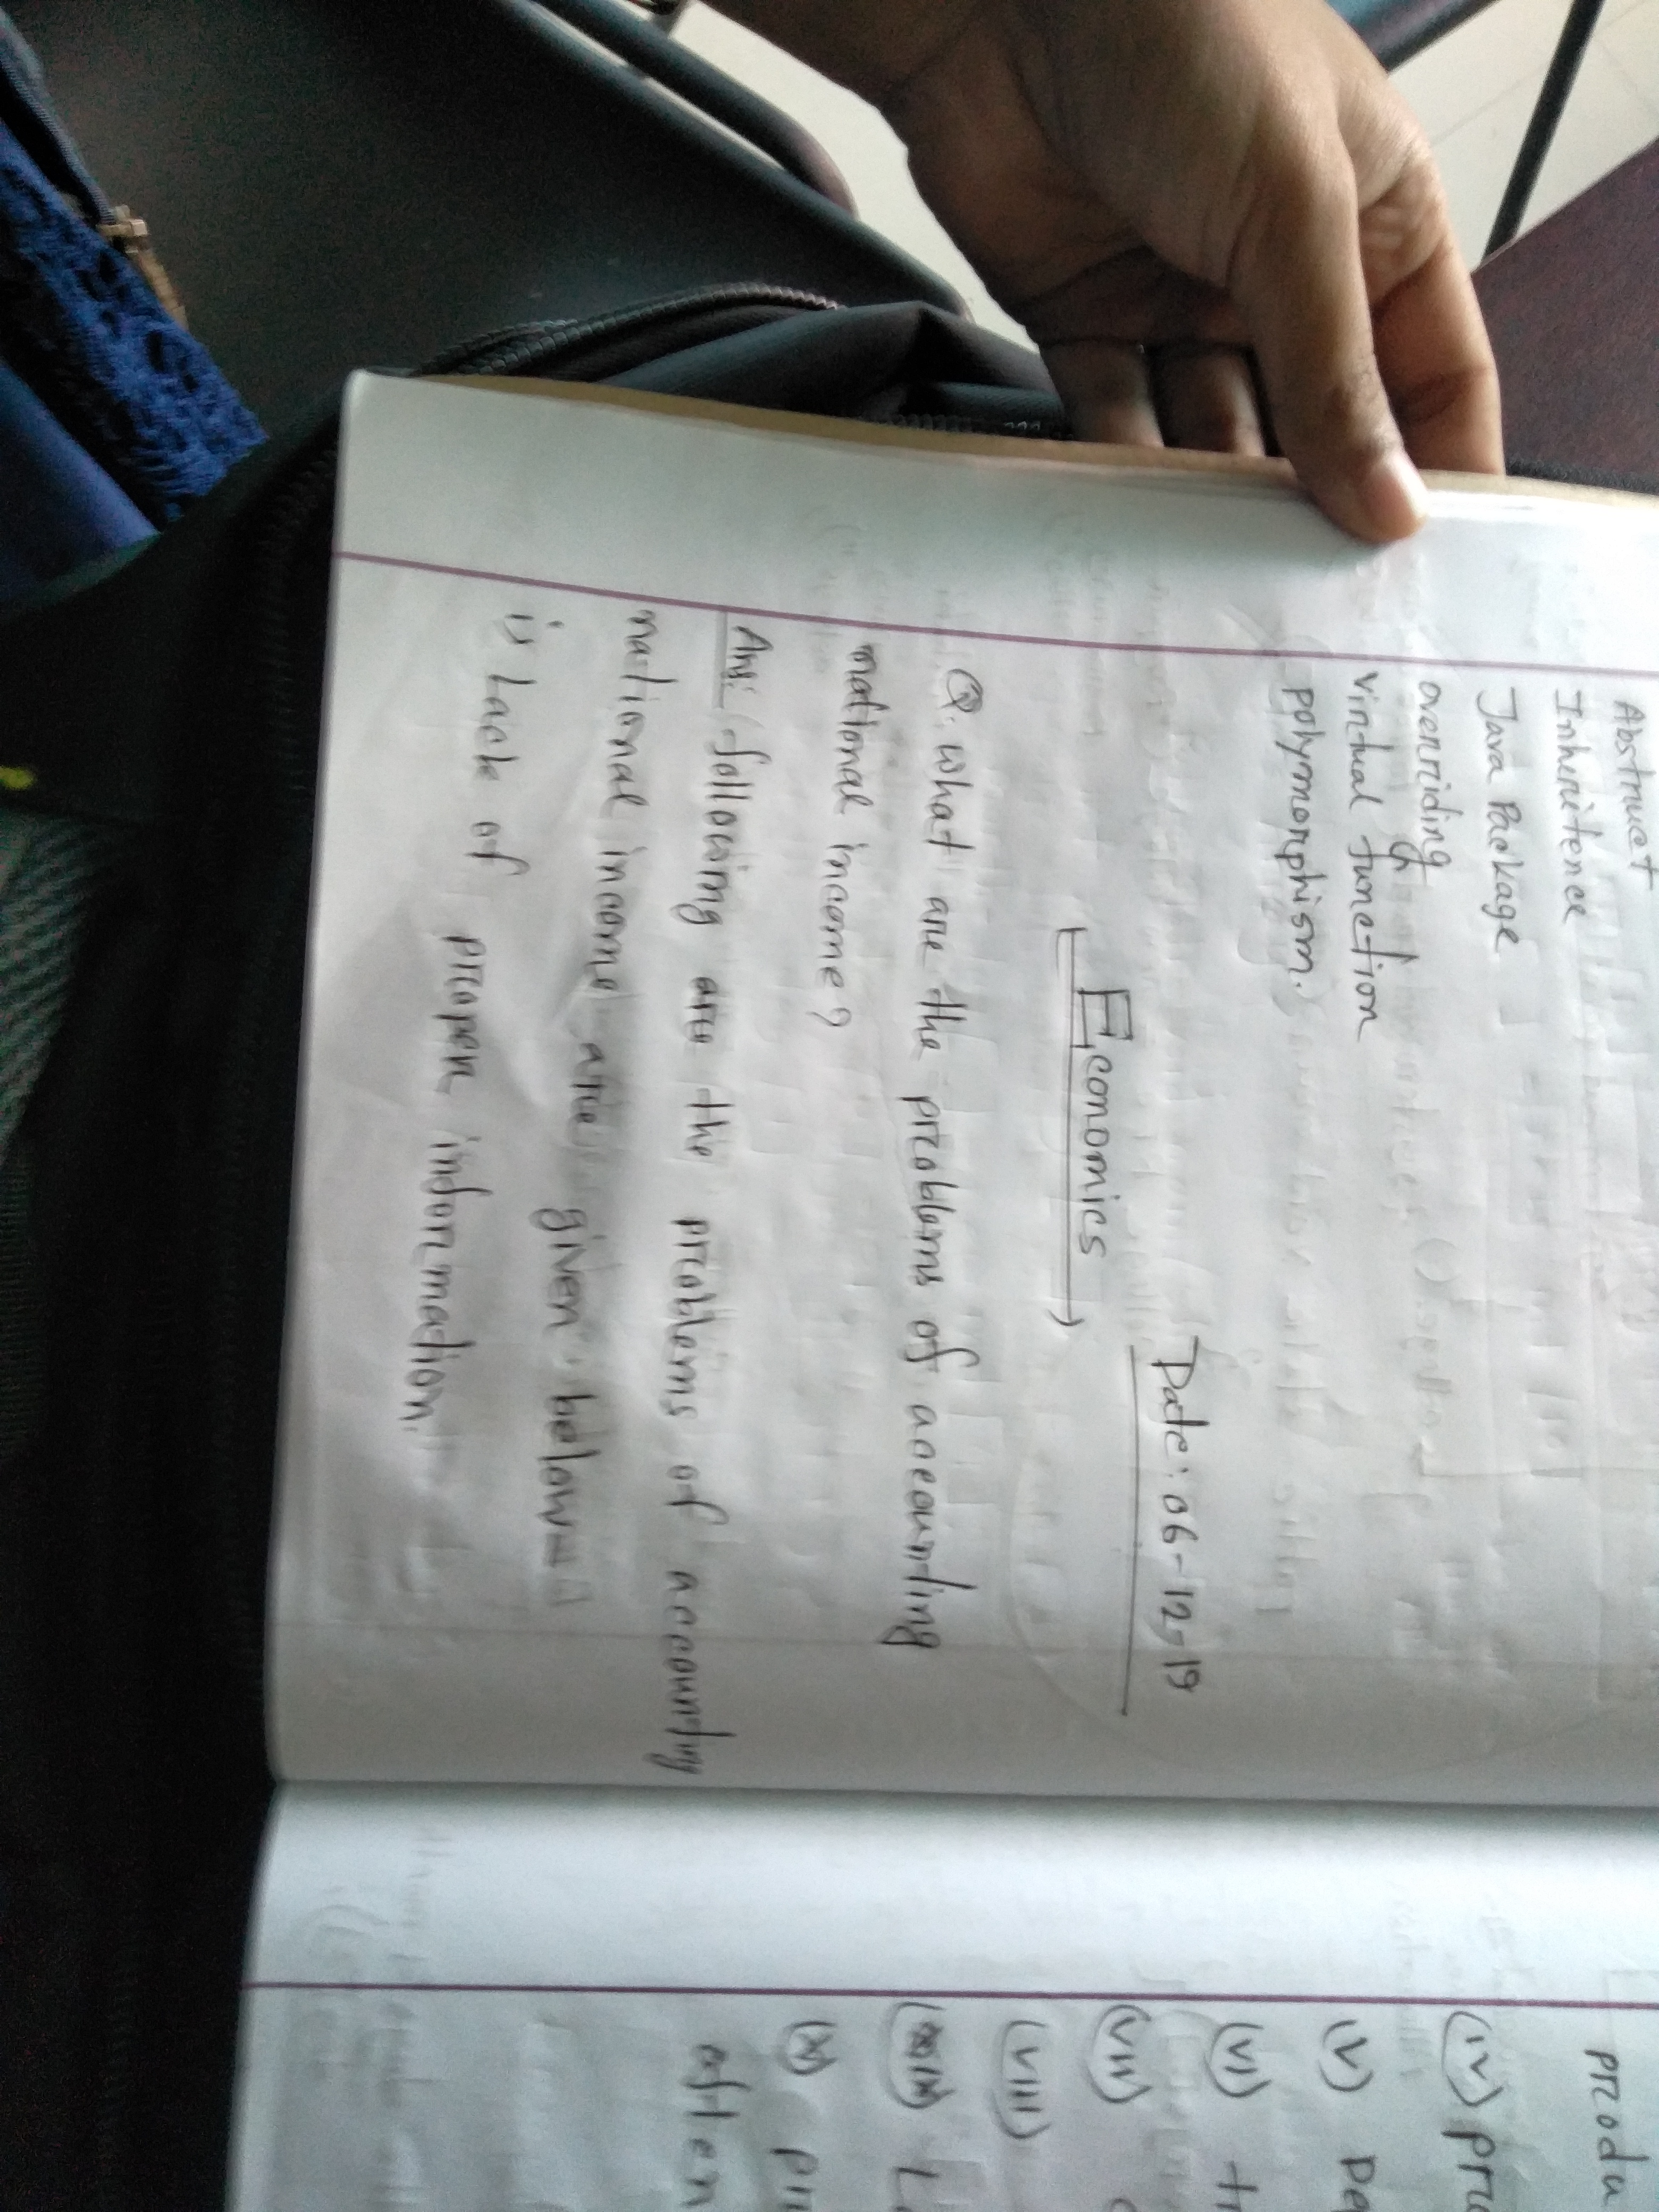 Abstruct
Inheritence
Java Package
overriding
virtual function
polymorphism.
Date: 06-12-19
Economics
Q. what are the problems of accounting
national income?
Ans: following are the problems of accounting
national income are given below=
is Lack of proper information.
produ
(iv) pro
(v) pe
(vi) tr
(vii)
(viii)
(ix) L
(x) pri
often